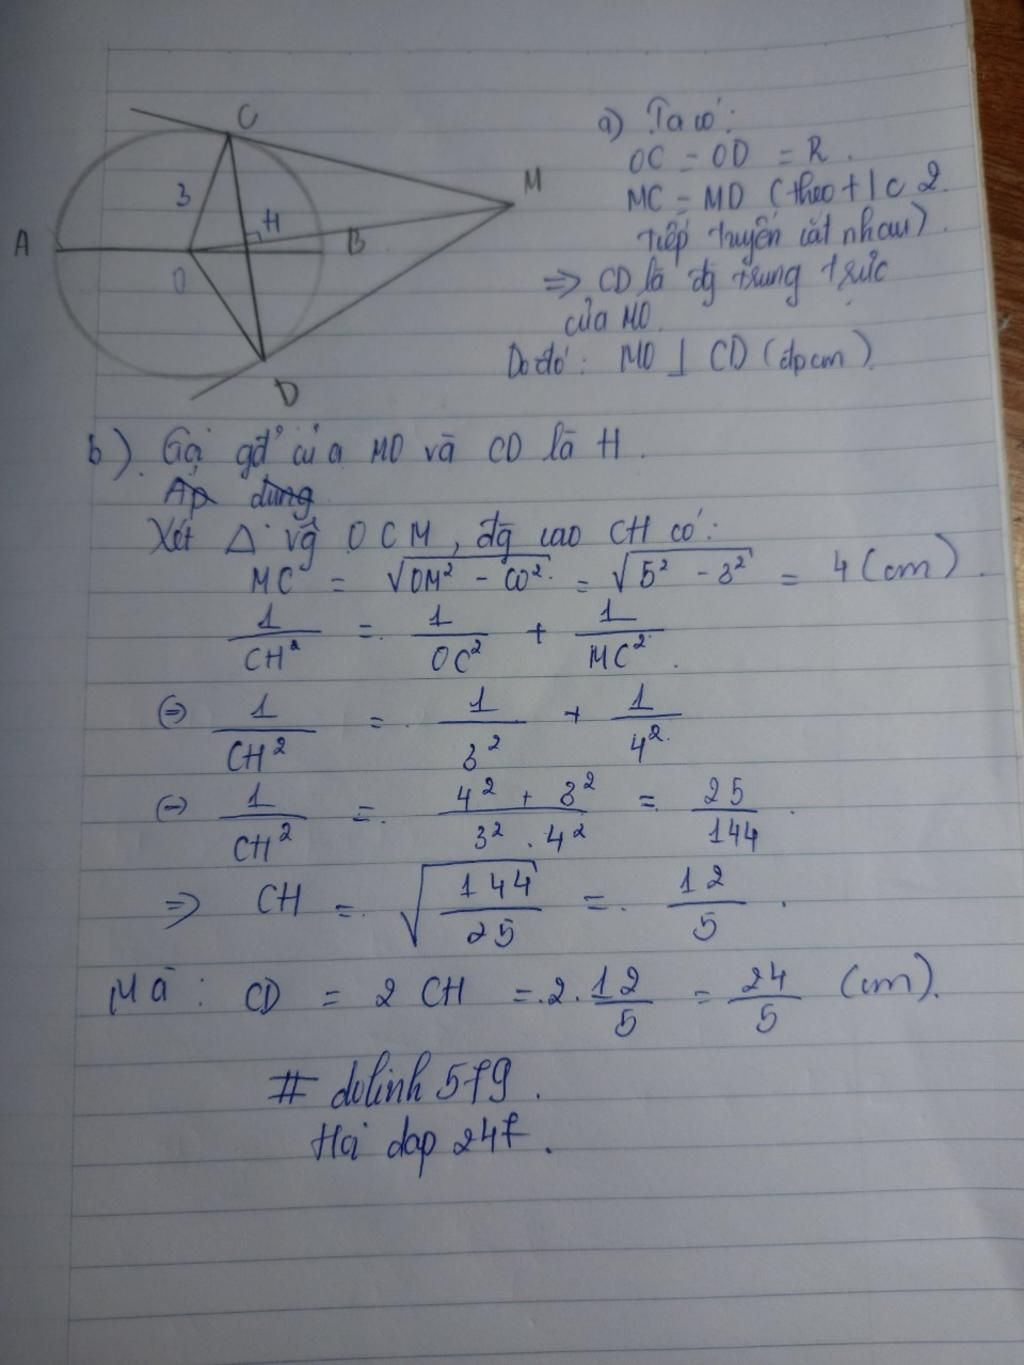 C
3
H
M
A
B
O
D
a) Ta có:
OC = OD = R.
MC = MD (theo t/c 2
tiếp tuyến cắt nhau).
=> CD là đg trung trực
của MO.
Do đó: MO ⊥ CD (đpcm).
b). Gọi gđ của MO và CD là H.
Áp dụng
Xét Δ vg OCM, đg cao CH có:
MC = √(OM² - CO²) = √(5² - 3²) = 4 (cm).
1/CH² = 1/OC² + 1/MC².
(=) 1/CH² = 1/3² + 1/4².
(=) 1/CH² = (4² + 3²)/(3² . 4²) = 25/144.
=> CH = √(144/25) = 12/5.
Mà: CD = 2 CH = 2. 12/5 = 24/5 (cm).
# dolinh 579.
Hoi dap 247.